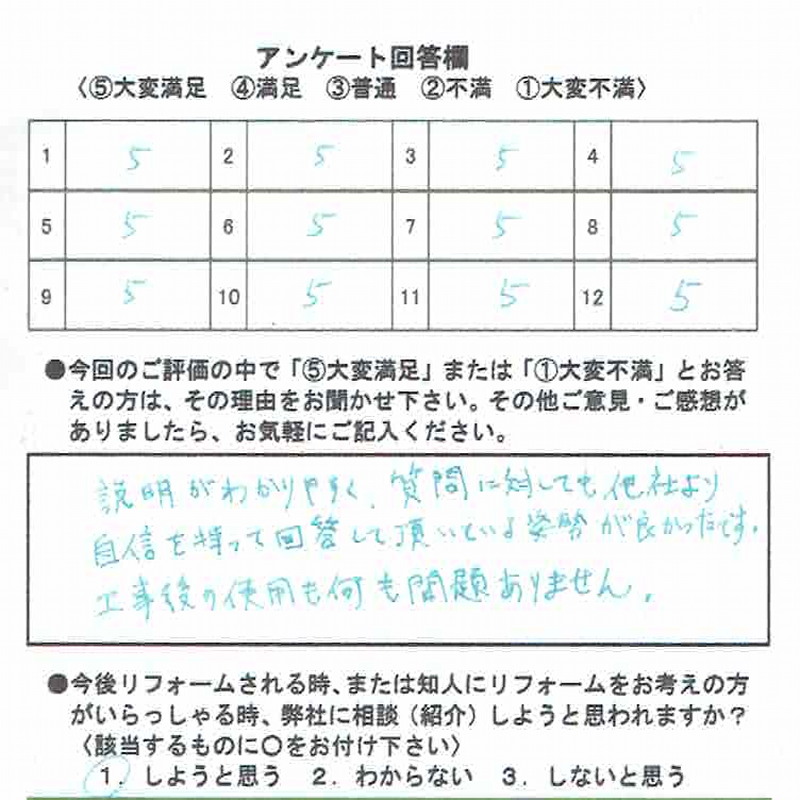 アンケート回答欄
〈⑤大変満足 ④満足 ③普通 ②不満 ①大変不満〉
1 5 2 5 3 5 4 5
5 5 6 5 7 5 8 5
9 5 10 5 11 5 12 5
●今回のご評価の中で「⑤大変満足」または「①大変不満」とお答
えの方は、その理由をお聞かせ下さい。その他ご意見・ご感想が
ありましたら、お気軽にご記入ください。
説明がわかりやすく、質問に対しても他社より
自信を持って回答して頂いている姿勢が良かったです。
工事後の使用も何も問題ありません。
●今後リフォームされる時、または知人にリフォームをお考えの方
がいらっしゃる時、弊社に相談（紹介）しようと思われますか？
〈該当するものに〇をお付け下さい〉
1．しようと思う 2．わからない 3．しないと思う